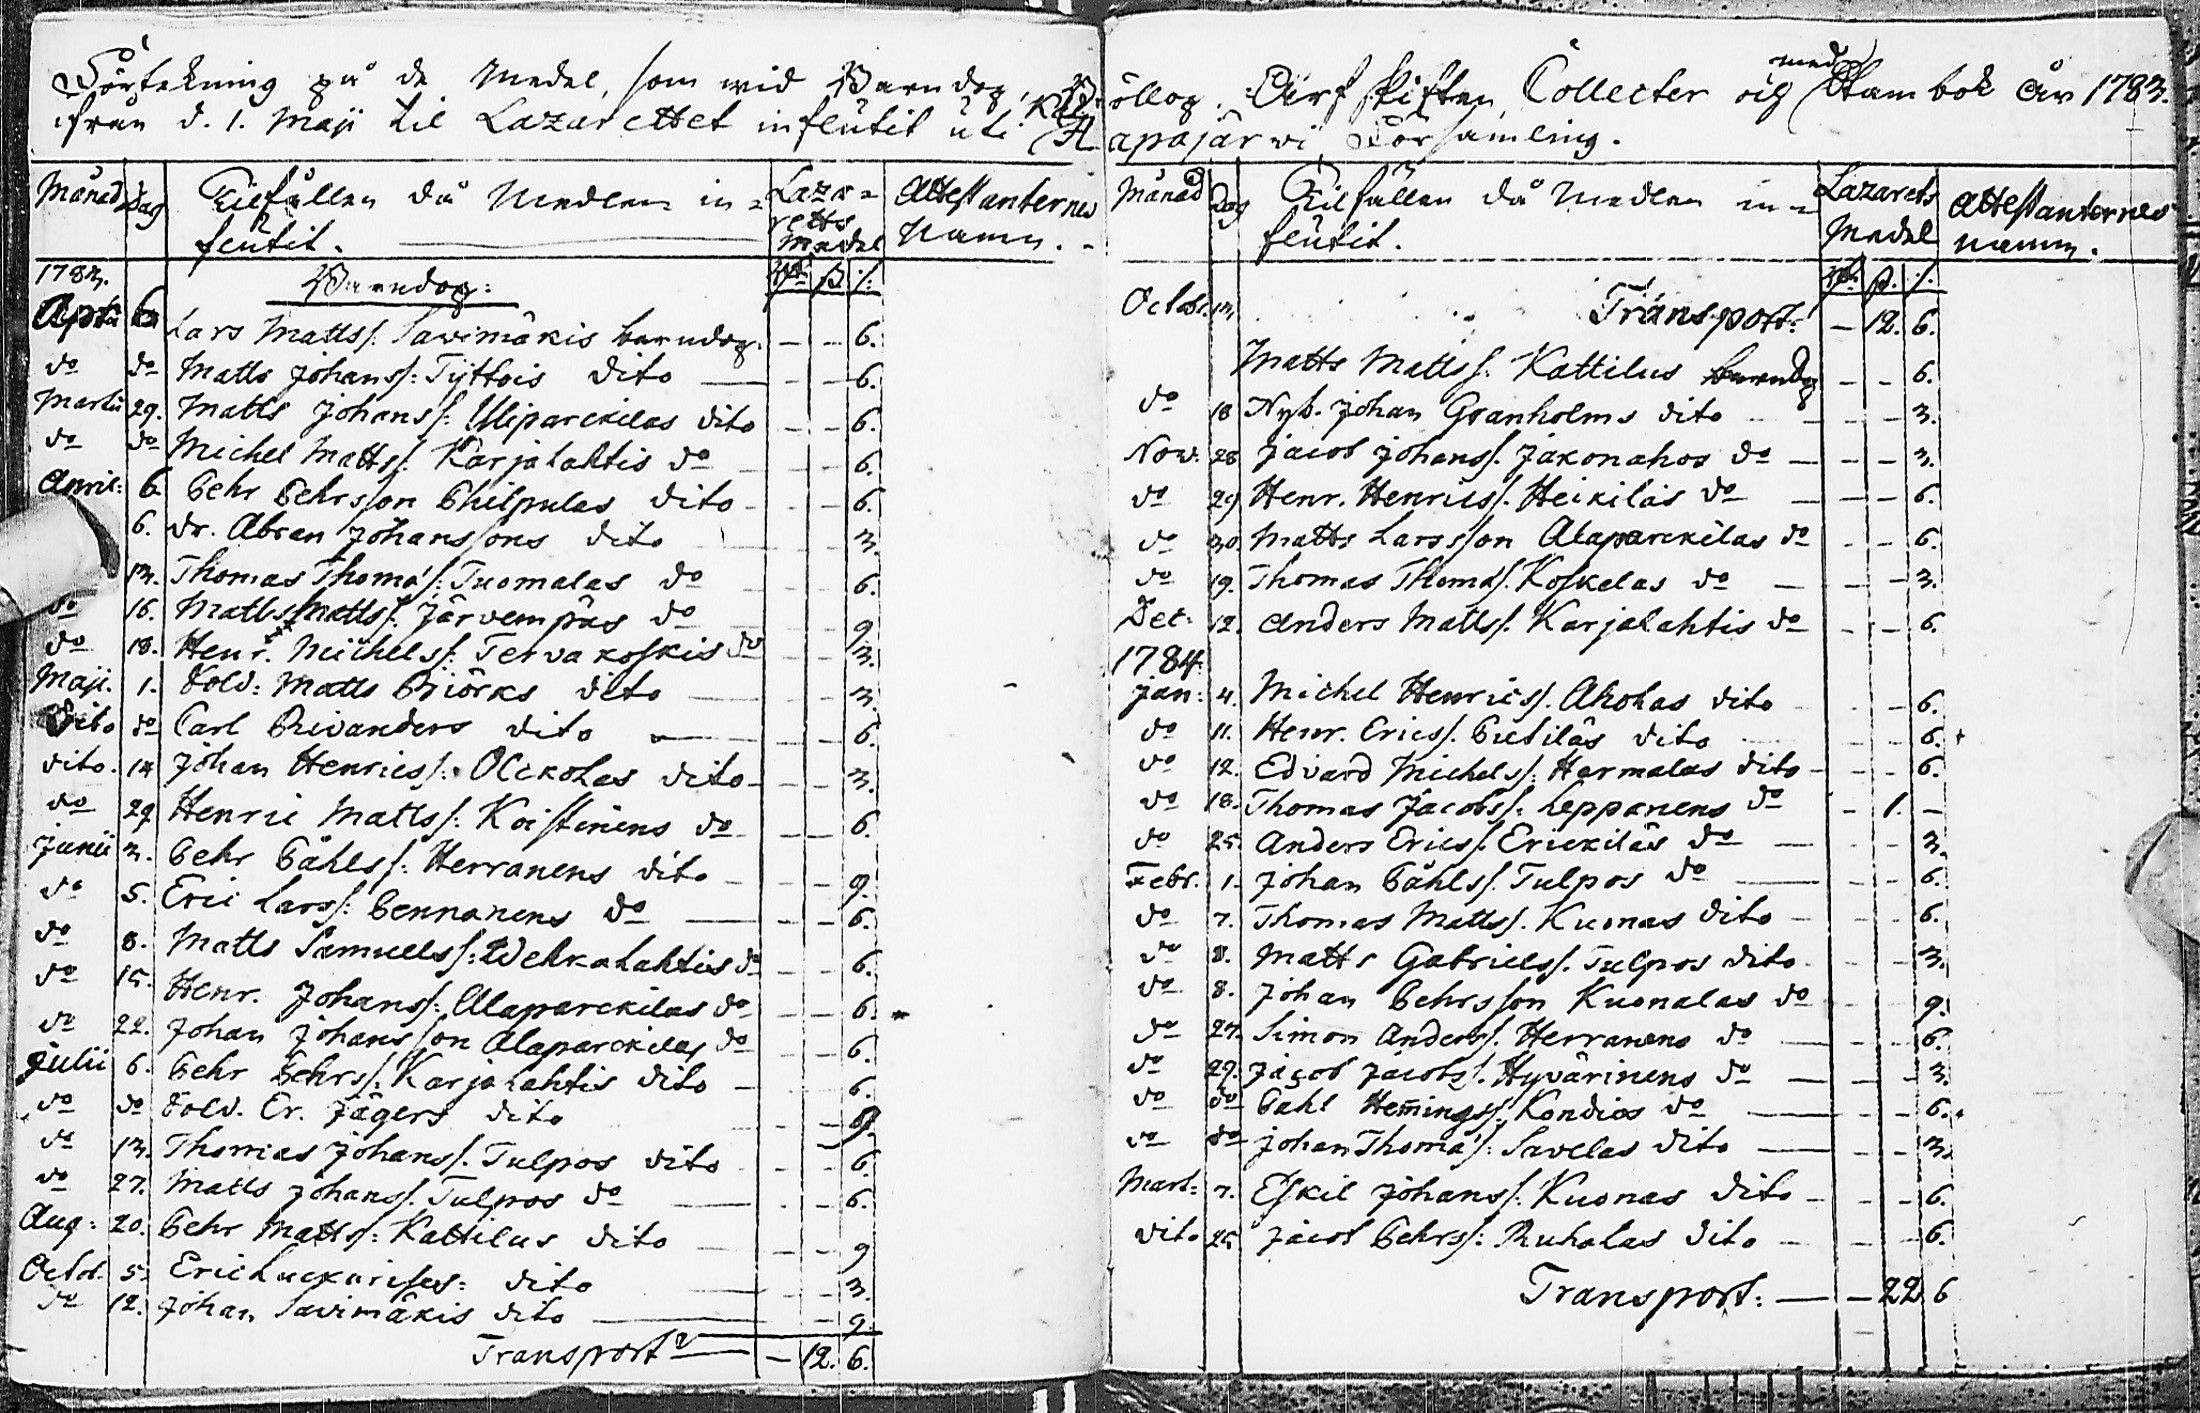 Förtekning på de Medel, som wid Barndop, Bröllop, Arfskiften, Collecter och med Stambok År 1783.
ifrån d. 1. Maji til Lazarettet influtit uti Kapajärwi Församling.
Månad Dag Tilfällen då Medlen in= Laza= Attestanternes
flutit. retts Namn.
Medel
1783. Barndop: ß
6 Lars Mattss: Savimäkis barndop. — — 6.
do do Matts Johanss: Tyttois dito — — 6.
Martii 29. Matts Johanss: Yliparckilas dito — — 6.
do do Michel Mattss: Karjalahtis do — — 6.
April: 6. Pehr Pehrsson Philpulas dito — — 6.
6. dr. Abram Johanssons dito — — 3.
13. Thomas Thomæs: Tuomalas do — — 6.
do 16. Matts Mattss: Järvempäs do — — 9
do 18. Henr. Michelss: Tervakoskis do — — 3.
Maji. 1. Sold: Matts Biörks dito — — 3.
Dito do Carl Rivanders dito — — 6.
dito. 14 Johan Henricss: Olckolas dito — — 3.
do 29 Henric Mattss: Koistinens do — — 6.
Junii 3. Pehr Påhlss: Herranens dito — — 9.
do 5. Eric Larss: Pennanens do — — 6.
do 8. Matts Samuelss: Wehkalahtis do — — 6.
do 15. Henr. Johanss: Alaparckilas do — — 6.
do 22. Johan Johansson Alaparckilas do — — 6.
Julii 6. Pehr Pehrss: Karjalahtis dito — — 6.
do do Sold. Er. Jägers dito — — 9.
do 13. Thomas Johanss. Tulpos dito — — 6.
do 27. Matts Johanss. Tulpos do — — 6.
Aug: 20. Pehr Mattss: Kattilus dito — — 9
Octob. 5. Eric dito — — 3.
do 12. Johan Savimäkis dito — — 9.
Transport — 12. 6.
Månad Dag Tilfällen då Medlen in= Lazarets Attestanternes
flutit. Medel namn.
ß.
Octobr. 13. Transport: — 12. 6.
Matts Mattss: Kattilus barndop — — 6.
do 18 Nyb. Johan Granholms dito — — 3.
Nov: 28 Jacob Johanss. Jakonahos do — — 3.
do 29 Henr. Henricss. Heikiläs do — — 6.
do 30. Matts Larsson Alaparckilas do — — 6.
do 19. Thomas Thomæs. Koskelas do — — 3.
Dec: 12. Anders Mattss. Karjalahtis do — — 6.
1784.
Jan: 4. Michel Henricss. Aholas dito — — 6.
do 11. Henr. Ericss. Putiläs dito — — 6.
do 12. Edvard Michelss: Harmalas dito — — 6.
do 18. Thomas Jacobss: Leppänens do — 1. —
do 25. Anders Ericss: Erickiläs do — — 3.
Febr. 1. Johan Påhlss. Tulpos do — — 6.
do 7. Thomas Mattss. Kuonas dito — — 6.
do 8. Matts Gabrielss. Tulpos dito — — 3.
do 8. Johan Pehrsson Kuonalas do — — 9.
do 27. Simon Anderss. Herranens do — — 6.
do 29. Jacob Jacobss. Hyvärinens do — — 3.
do do Påhl Hemingss: Kondios do — — 6.
do do Johan Thomæs: Savelas dito — — 3.
Mart: 7. Eskil Johanss: Kuonas dito — — 6.
dito 25 Jacob Pehrss: Ruholas dito — — 6.
Transport: — — 22 6